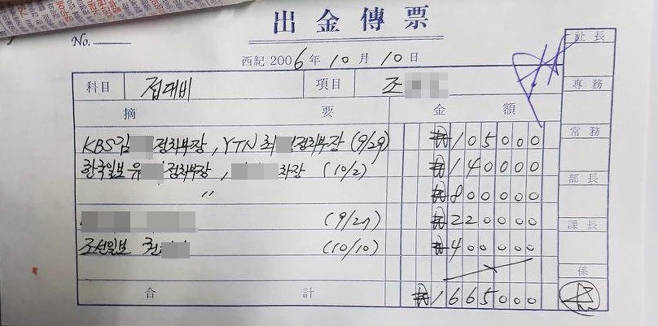 出金傳票
No.
西紀 2006年 10月 10日
科目 접대비 項目 조
摘要 金額
KBS김 정치부장, YTN 최 정치부장 (9/29) ₩105000
한국일보 유 정치부장, 차장 (10/2) ₩140000
〃 ₩800000
(9/27) ₩220000
조선일보 (10/10) ₩400000
合計 ₩1665000
社長
專務
常務
部長
課長
係